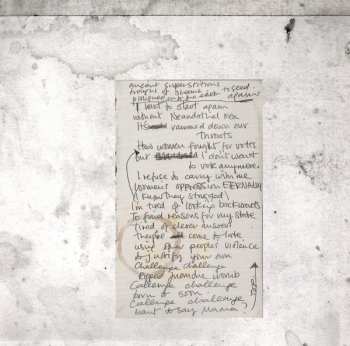 ancient superstitions
troughs of
to seed again
I want to start again
without Neandothal men
Its rammed down our
Throats
How women fought for votes
but I don't want
to vote anymore.
I refuse to carry with me
womens oppression ETERNALLY
I know they struggled
I'm tired of looking backwards
To find reasons for my state
Tired of clever answers
Theories come to late
using other peoples violence
to justify your own
Challenge challenge
womb
Challenge challenge
born to soon
Challenge challenge
want to say Mama